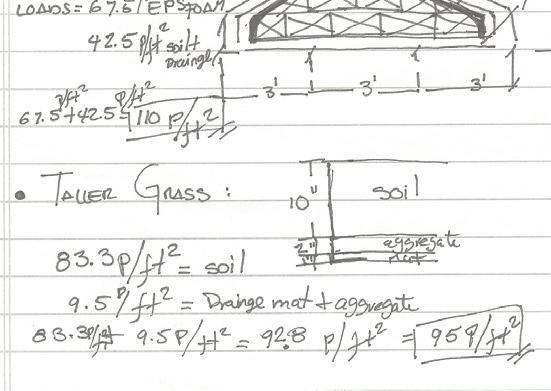 LOADS = 67.5 / EPS FOAM
42.5 P/ft² soil +
Drainge
P/ft² P/ft²
67.5 + 42.5 = 110 P/ft²
3' 3' 3'
• TALLER GRASS :
10" soil
2" aggregate
1" mat
83.3 P/ft² = soil
9.5 P/ft² = Drainge mat + aggregate
83.3 P/ft 9.5 P/ft² = 92.8 P/ft² = 95 P/ft²